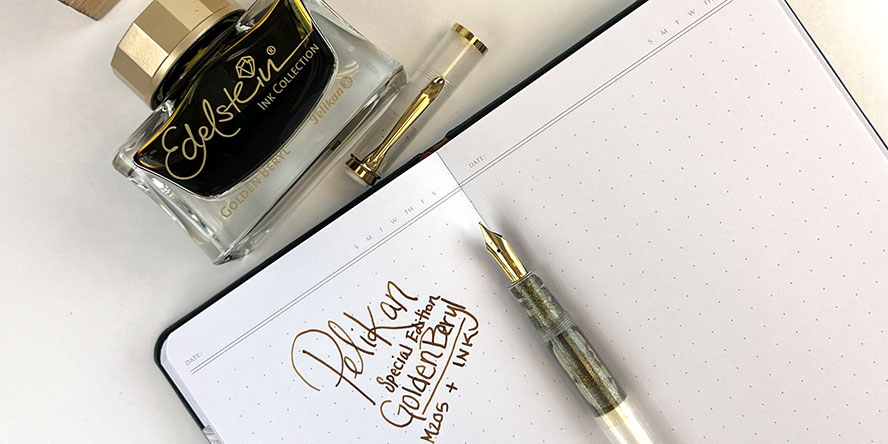 Edelstein®
INK COLLECTION
Pelikan
GOLDEN BERYL
S M T W TH F S
DATE:
S M T W TH
DATE:
Pelikan
Special Edition
Golden Beryl
M205 + INK